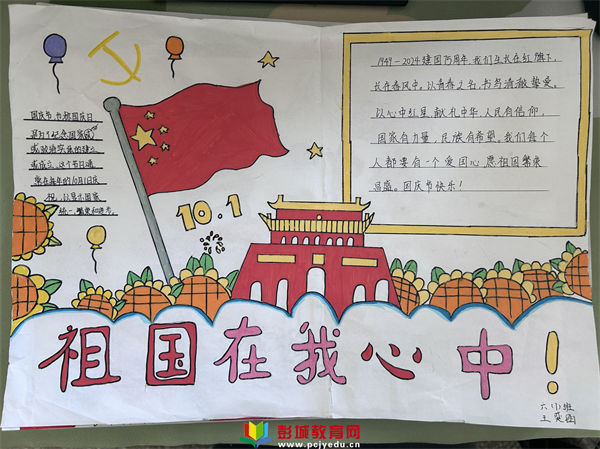 国庆节也称国庆日
是为了纪念国家
或政治实体的建立
或成立,这个节日通
常在每年的10月1日庆
祝,以显示国家
统一,繁荣和进步。
10.1
1949-2024建国75周年,我们生长在红旗下,
长在春风中,以青春之名,书写清澈挚爱。
以心中红星,献礼中华,人民有信仰,
国家有力量,民族有希望。我们每个
人都要有一个爱国心,愿祖国繁荣
昌盛。国庆节快乐!
祖国在我心中!
六(1)班
王
彭城教育网
www.pcjyedu.cn